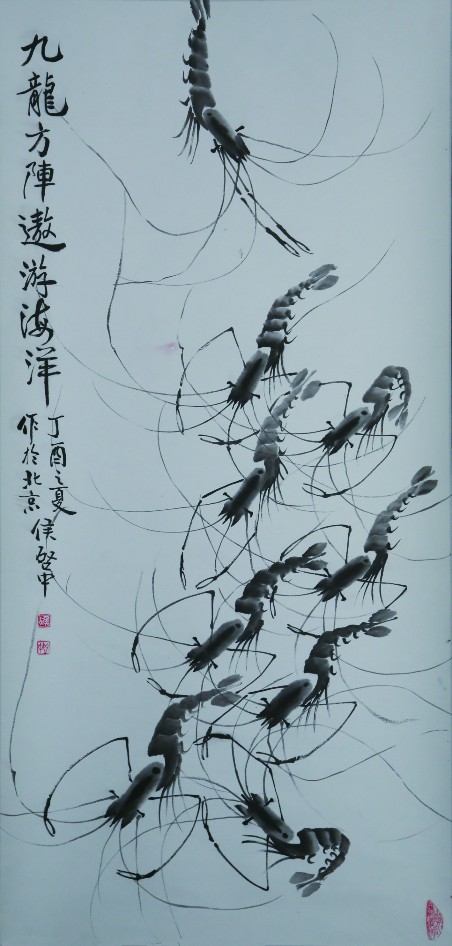 九龍方陣遨游海洋
丁酉之夏
作於北京 侯啓甲